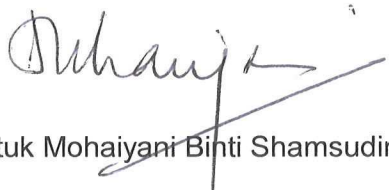 tuk Mohaiyani Binti Shamsudin